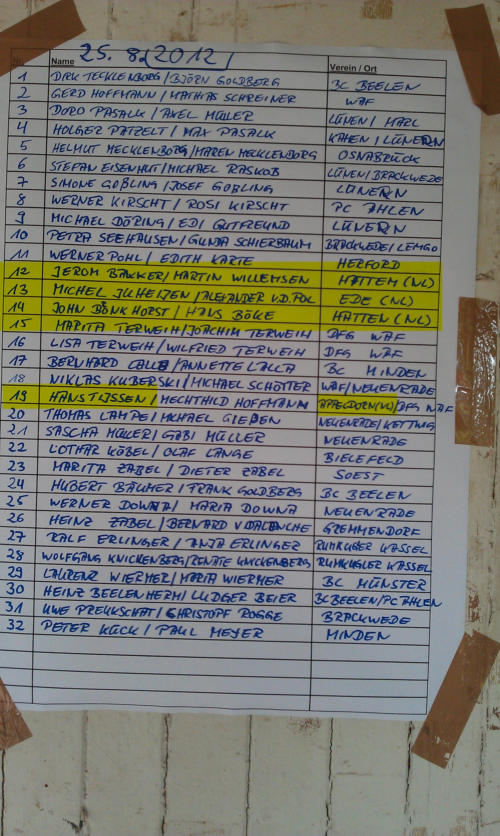 Name 25.8.2012 Verein / Ort
1 DIRK TECKLENBORG / BJÖRN GOLDBERG BC BEELEN
2 GERD HOFFMANN / MATHIAS SCHREINER WAF
3 DORO PASALK / AXEL MÜLLER LÜNEN / MARL
4 HOLGER PATZELT / MAX PASALK KAMEN / LÜNERN
5 HELMUT MECKLENBORG / MAREN MECKLENBORG OSNABRÜCK
6 STEFAN EISENHUT / MICHAEL RASKOB LÜNEN / BRACKWEDE
7 SIMONE GÖßLING / JOSEF GÖßLING LÜNERN
8 WERNER KIRSCHT / ROSI KIRSCHT PC AHLEN
9 MICHAEL DÖRING / EDI GUTFREUND LÜNERN
10 PETRA SEEHAUSEN / GUNDA SCHIERBAUM BRACKWEDE / LEMGO
11 WERNER POHL / EDITH KARTE HERFORD
12 JEROM BAKKER / MARTIN WILLEMSEN HATTEM (NL)
13 MICHEL JULHEIZEN / ALEXANDER V.D. POL EDE (NL)
14 JOHN BÖNKHORST / HANS BÖKE HATTEN (NL)
15 MARITA TERWEIH / JOACHIM TERWEIH DFG WAF
16 LISA TERWEIH / WILFRIED TERWEIH DFG WAF
17 BERNHARD LALLA / ANNETTE LALLA BC MINDEN
18 NIKLAS KUBERSKI / MICHAEL SCHÖTTER WAF / NEUENRADE
19 HANS TIJSSEN / MECHTHILD HOFFMANN APPELDORN (NL) / DFG WAF
20 THOMAS LAMPE / MICHAEL GIEßEN NEUENRADE / KETTWIG
21 SASCHA MÜLLER / GABI MÜLLER NEUENRADE
22 LOTHAR KÖBEL / OLAF LANGE BIELEFELD
23 MARITA ZABEL / DIETER ZABEL SOEST
24 HUBERT BÄUMER / FRANK GOLDBERG BC BEELEN
25 WERNER DOWNA / MARIA DOWNA NEUENRADE
26 HEINZ ZABEL / BERNARD V DALANCHE GREMMENDORF
27 RALF ERLINGER / ANJA ERLINGER RUMKUGLER KASSEL
28 WOLFGANG KNICKENBERG / RENATE KNICKENBERG RUMKUGLER KASSEL
29 LAURENZ WIERMER / MARIA WIERMER BC MÜNSTER
30 HEINZ BEELENHERM / LUDGER BEIER BC BEELEN / PC AHLEN
31 UWE PREUKSCHAT / CHRISTOPF ROGGE BRACKWEDE
32 PETER KÜCK / PAUL MEYER MINDEN